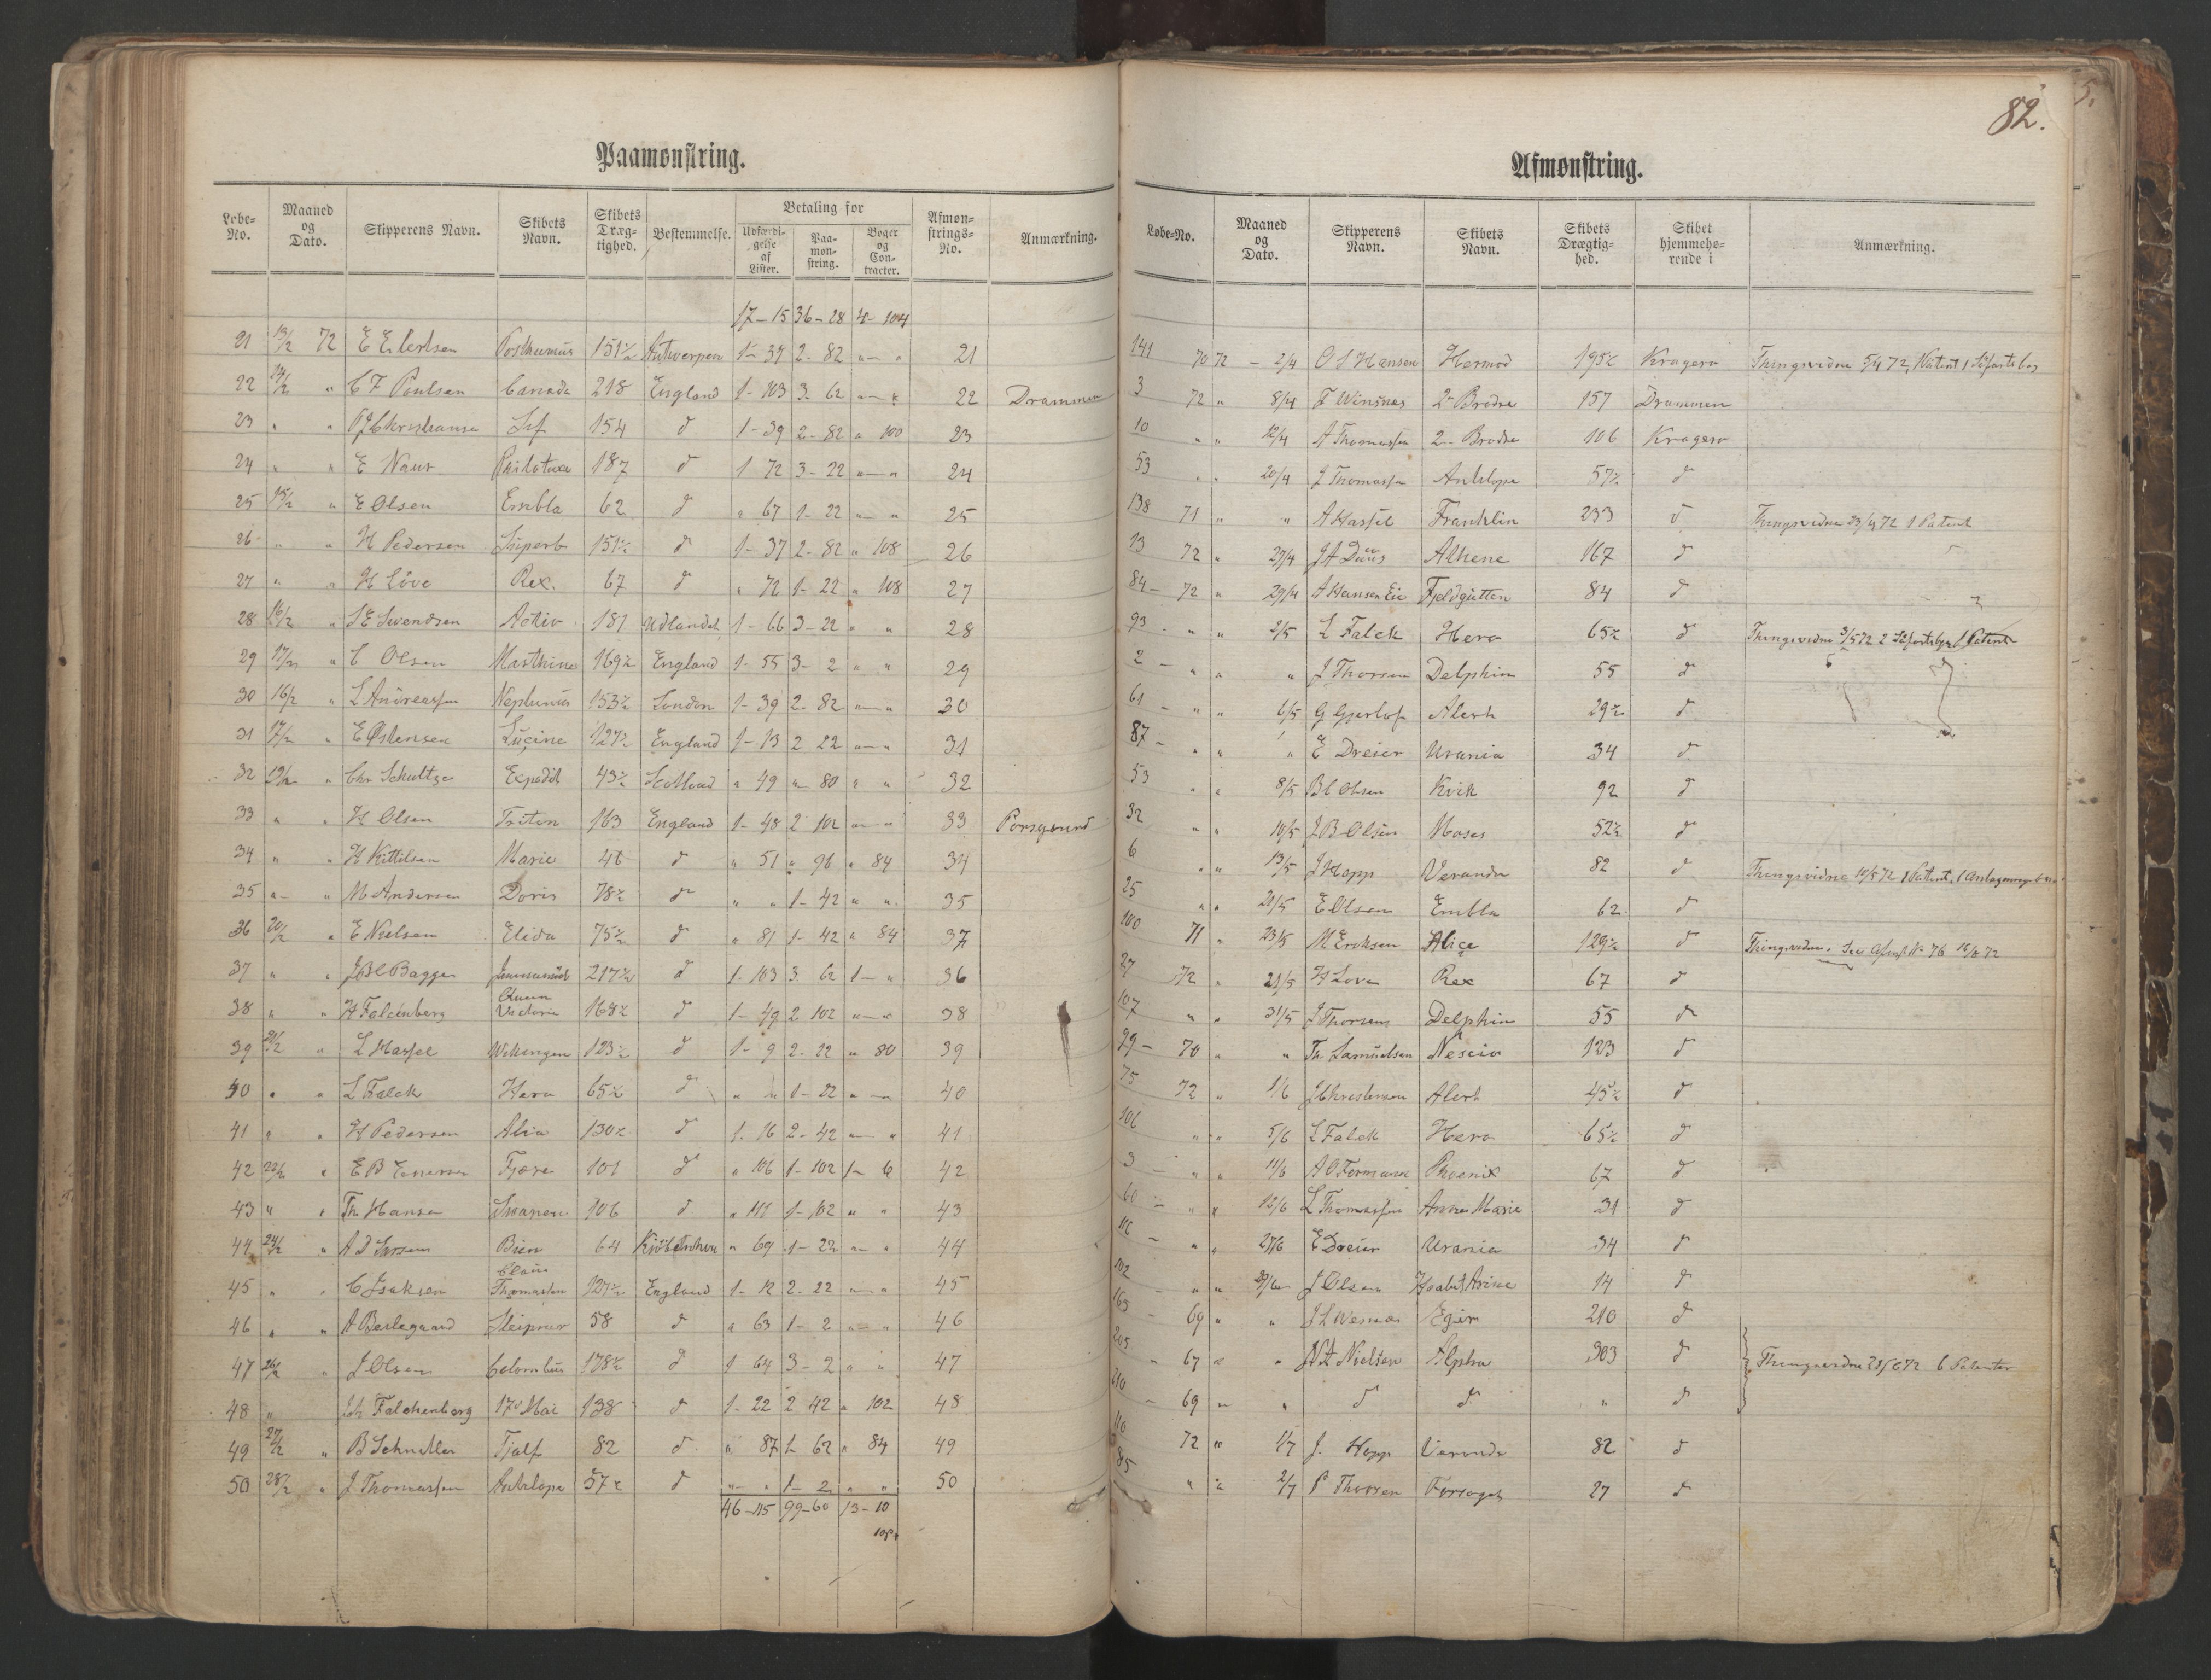 82.
Paamønstring.
Løbe-No. Maaned og Dato. Skipperens Navn. Skibets Navn. Skibets Dræg-tighed. Bestemmelse. Betaling for Udfærdi-gelse af Lister. Paa-møn-string. Bøger og Con-tracter. Afmøn-strings-No. Anmærkning.
17-15 36-28 4-104
21 13/2 72 E Eilertsen Posthumus 151½ Antwerpen 1-37 2-82 " " 21
22 14/2 " C F Poulsen Canada 218 England 1-103 3-62 " " 22 Drammen
23 " " Leif 154 d 1-39 2-82 " 100 23
24 " " E Naur 187 d 1 72 3-22 " " 24
25 15/2 " E Olsen Embla 62 d " 67 1-22 " " 25
26 " " H Pedersen Superb 151½ d 1-37 2-82 " 108 26
27 " " H Løve Rex. 67 d " 72 1-22 " 108 27
28 16/2 " S E Svendsen Activ 181 Udlandet 1-66 3-22 " " 28
29 17/2 " C Olsen Marthine 169½ England 1-55 3-2 " " 29
30 16/2 " L Andreassen Neptunus 153½ London 1-39 2-82 " " 30
31 17/2 " E Østensen Lucine 127½ England 1-13 2 22 " " 31
32 19/2 " Chr Schultze Expedit 43½ Scotland " 49 " 80 " " 32
33 " " H Olsen Triton 163 England 1-48 2 102 " " 33 Porsgrund
34 " " H Kittilsen Marie 46 d " 51 " 96 " 84 34
35 " " M Andersen Doris 78½ d " " 1-42 " " 35
36 20/2 " E Nielsen Elida 75½ d " 81 1-42 " 84 37
37 " " J B C Bagger 217½ d 1-103 3 62 1- " 36
38 " " H Falkenberg Queen Victoria 168½ d 1-49 2 102 " " 38
39 21/2 " L Hassel Wikengen 123½ d 1-9 2-22 " 80 39
40 " " L Falck Hera 65½ d " " 1-22 " " 40
41 " " H Pedersen Alia 130½ d 1-16 2-42 " " 41
42 22/2 " E B Fjære 101 d " 106 1-102 1- 6 42
43 " " Th Hansen Svanen 106 d " 111 1-102 " " 43
44 24/2 " A D Bien 64 Kiøbenhavn " 69 1-22 " " 44
45 " " C Isaksen Claus Thomassen 127½ England 1-12 2-22 " " 45
46 " " A Berlegaard Sleipner 58 d " 63 1-2 " " 46
47 26/2 " J Olsen Colombus 178½ d 1 64 3-2 " " 47
48 " Joh Falchenberg 17de Mai 138 d 1-22 2 42 " 102 48
49 27/2 " B Schneller Tjalf 82 d " 87 1 62 " 84 49
50 28/2 " J Thomassen Antelope 57½ d " " 1-2 " " 50
46-115 99-60 13-10
Afmønstring.
Løbe-No. Maaned og Dato. Skipperens Navn. Skibets Navn. Skibets Drægtig-hed. Skibet hjemmehø-rende i Anmærkning.
141 70 72 - 2/4 O S Hansen Hermod 195½ Kragerø Thingsvidne 5/4 72, 1 Patent 1 Søfartsbog
3 72 " 8/4 F Winsnes 2 Brødre 157 Drammen
10 " " 12/4 A Thomassen 2 Brødre 106 Kragerø
53 " " 20/4 J Thomassen Antelope 57½ d
138 71 " " A Hassel Franklin 233 d Thingsvidne 23/4 72 1 Patent
13 72 " 27/4 J A Duus Athene 167 d
84 - 72 " 29/4 A Hansen Eie Fjeldgutten 84 d
93 - " " 2/5 L Falck Hera 65½ d Thingsvidne 3/5 72 2 Søfartsbøger 1 Patent
2 - " " " J Thorsen Delphin 55 d
61 - " " 6/5 G Gjerløf Alert 29½ d
87 - " " " E Dreier Urania 34 d
53 " " 8/5 B C Olsen Kvik 92 d
32 " " 10/5 J B Olsen Moses 52½ d
6 " " 13/5 J Hopp Veranda 82 d Thingsvidne 10/5 72 1 Patent,
25 " " 21/5 E Olsen Embla 62 d
100 71 " 23/5 M Eriksen Alice 129½ d Thingsvidne. See Afmst No 76
27 72 " 29/5 H Løve Rex 67 d
107 " " 31/5 J Thorsen Delphin 55 d
99 - 70 " " Th Samuelsen Nescio 123 d
75 72 " 1/6 J Christensen Alert 45½ d
106 " " 5/6 L Falck Hera 65½ d
3 - " " 11/6 A O Fermann Phoenix 67 d
60 - " " 12/6 L Thomassen Anne Marie 31 d
116 - " " 27/6 E Dreier Urania 34 d
102 " " 29/6 J Olsen Haabet Arine 14 d
165 - 69 " " J L Wesmas Egir 210 d
205 - 67 " " N A Nielsen Alpha 303 d Thingsvidne 29/6 72 6 Patenter
210 - 69 " " d d " d
110 72 " 1/7 J. Hopp Veranda 82 d
85 " " 2/7 P Thorsen Forsøget 27 d